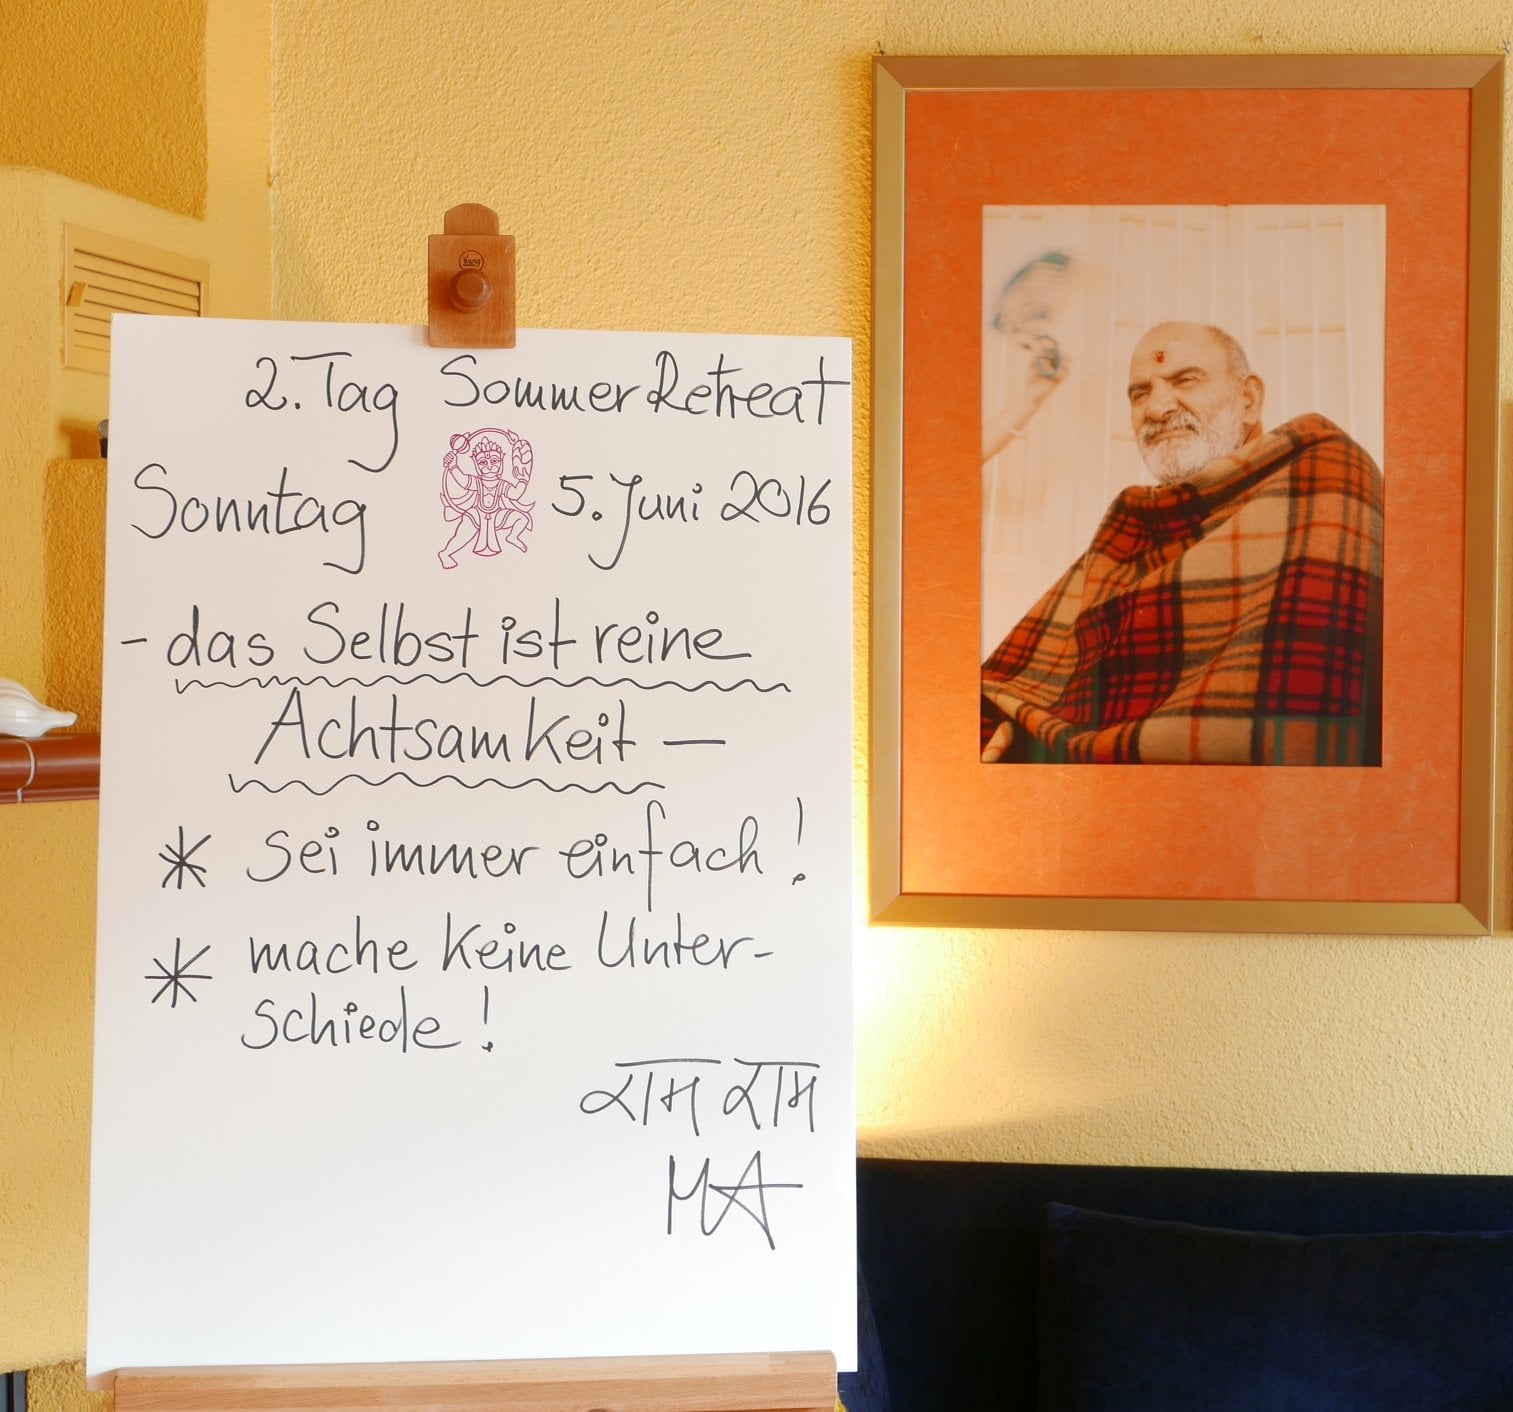 Yang
2. Tag Sommer Retreat
Sonntag 5. Juni 2016
- das Selbst ist reine
Achtsamkeit -
* sei immer einfach!
* mache keine Unter-
schiede!
राम राम
MA